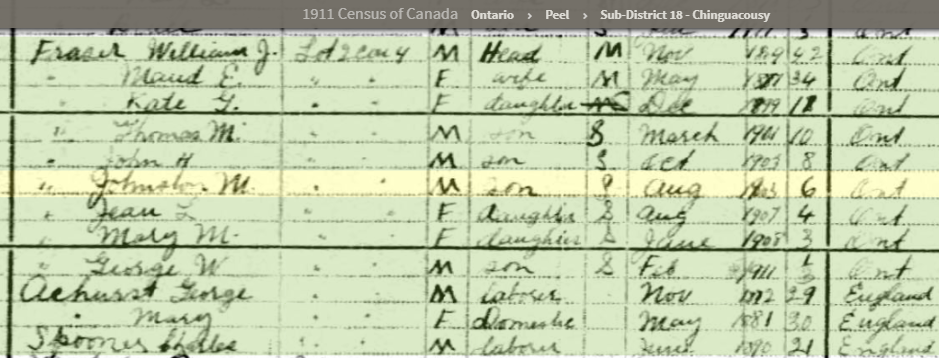 1911 Census of Canada Ontario › Peel › Sub-District 18 - Chinguacousy
Fraser William J. Lot 2 con 4 M Head M Nov 42 Ont
" Maud E. " " F wife M May 34 Ont
" Kate G. " " F daughter Dec Ont
" Thomas M. " " M son S March 1901 10 Ont
" John H " " M son S Oct 1903 8 Ont
" Johnston M. " " M son S Aug 6 Ont
" Jean L " " F daughter S Aug 1907 4 Ont
" Mary M. " " F daughter S June 1908 3 Ont
" George W " " M son S Feb 1911 Ont
Achurst George M laborer Nov 29 England
" Mary F Domestic May 1881 30 England
Spooner Charles M laborer June 1890 21 England